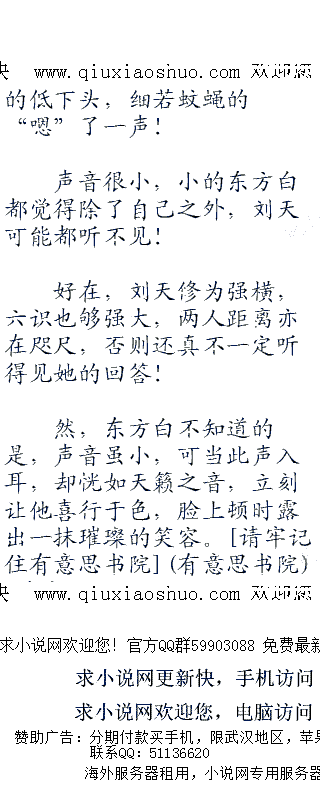 快 www.qiuxiaoshuo.com 欢迎您
的低下头，细若蚊蝇的
“嗯”了一声！
声音很小，小的东方白
都觉得除了自己之外，刘天
可能都听不见！
好在，刘天修为强横，
六识也够强大，两人距离亦
在咫尺，否则还真不一定听
得见她的回答！
然，东方白不知道的
是，声音虽小，可当此声入
耳，却恍如天籁之音，立刻
让他喜行于色，脸上顿时露
出一抹璀璨的笑容。[请牢记
住有意思书院](有意思书院)
快 www.qiuxiaoshuo.com 欢迎您
求小说网欢迎您！官方QQ群59903088 免费最新
求小说网更新快，手机访问
求小说网欢迎您，电脑访问
赞助广告：分期付款买手机，限武汉地区，苹果
联系QQ：51136620
海外服务器租用，小说网专用服务器